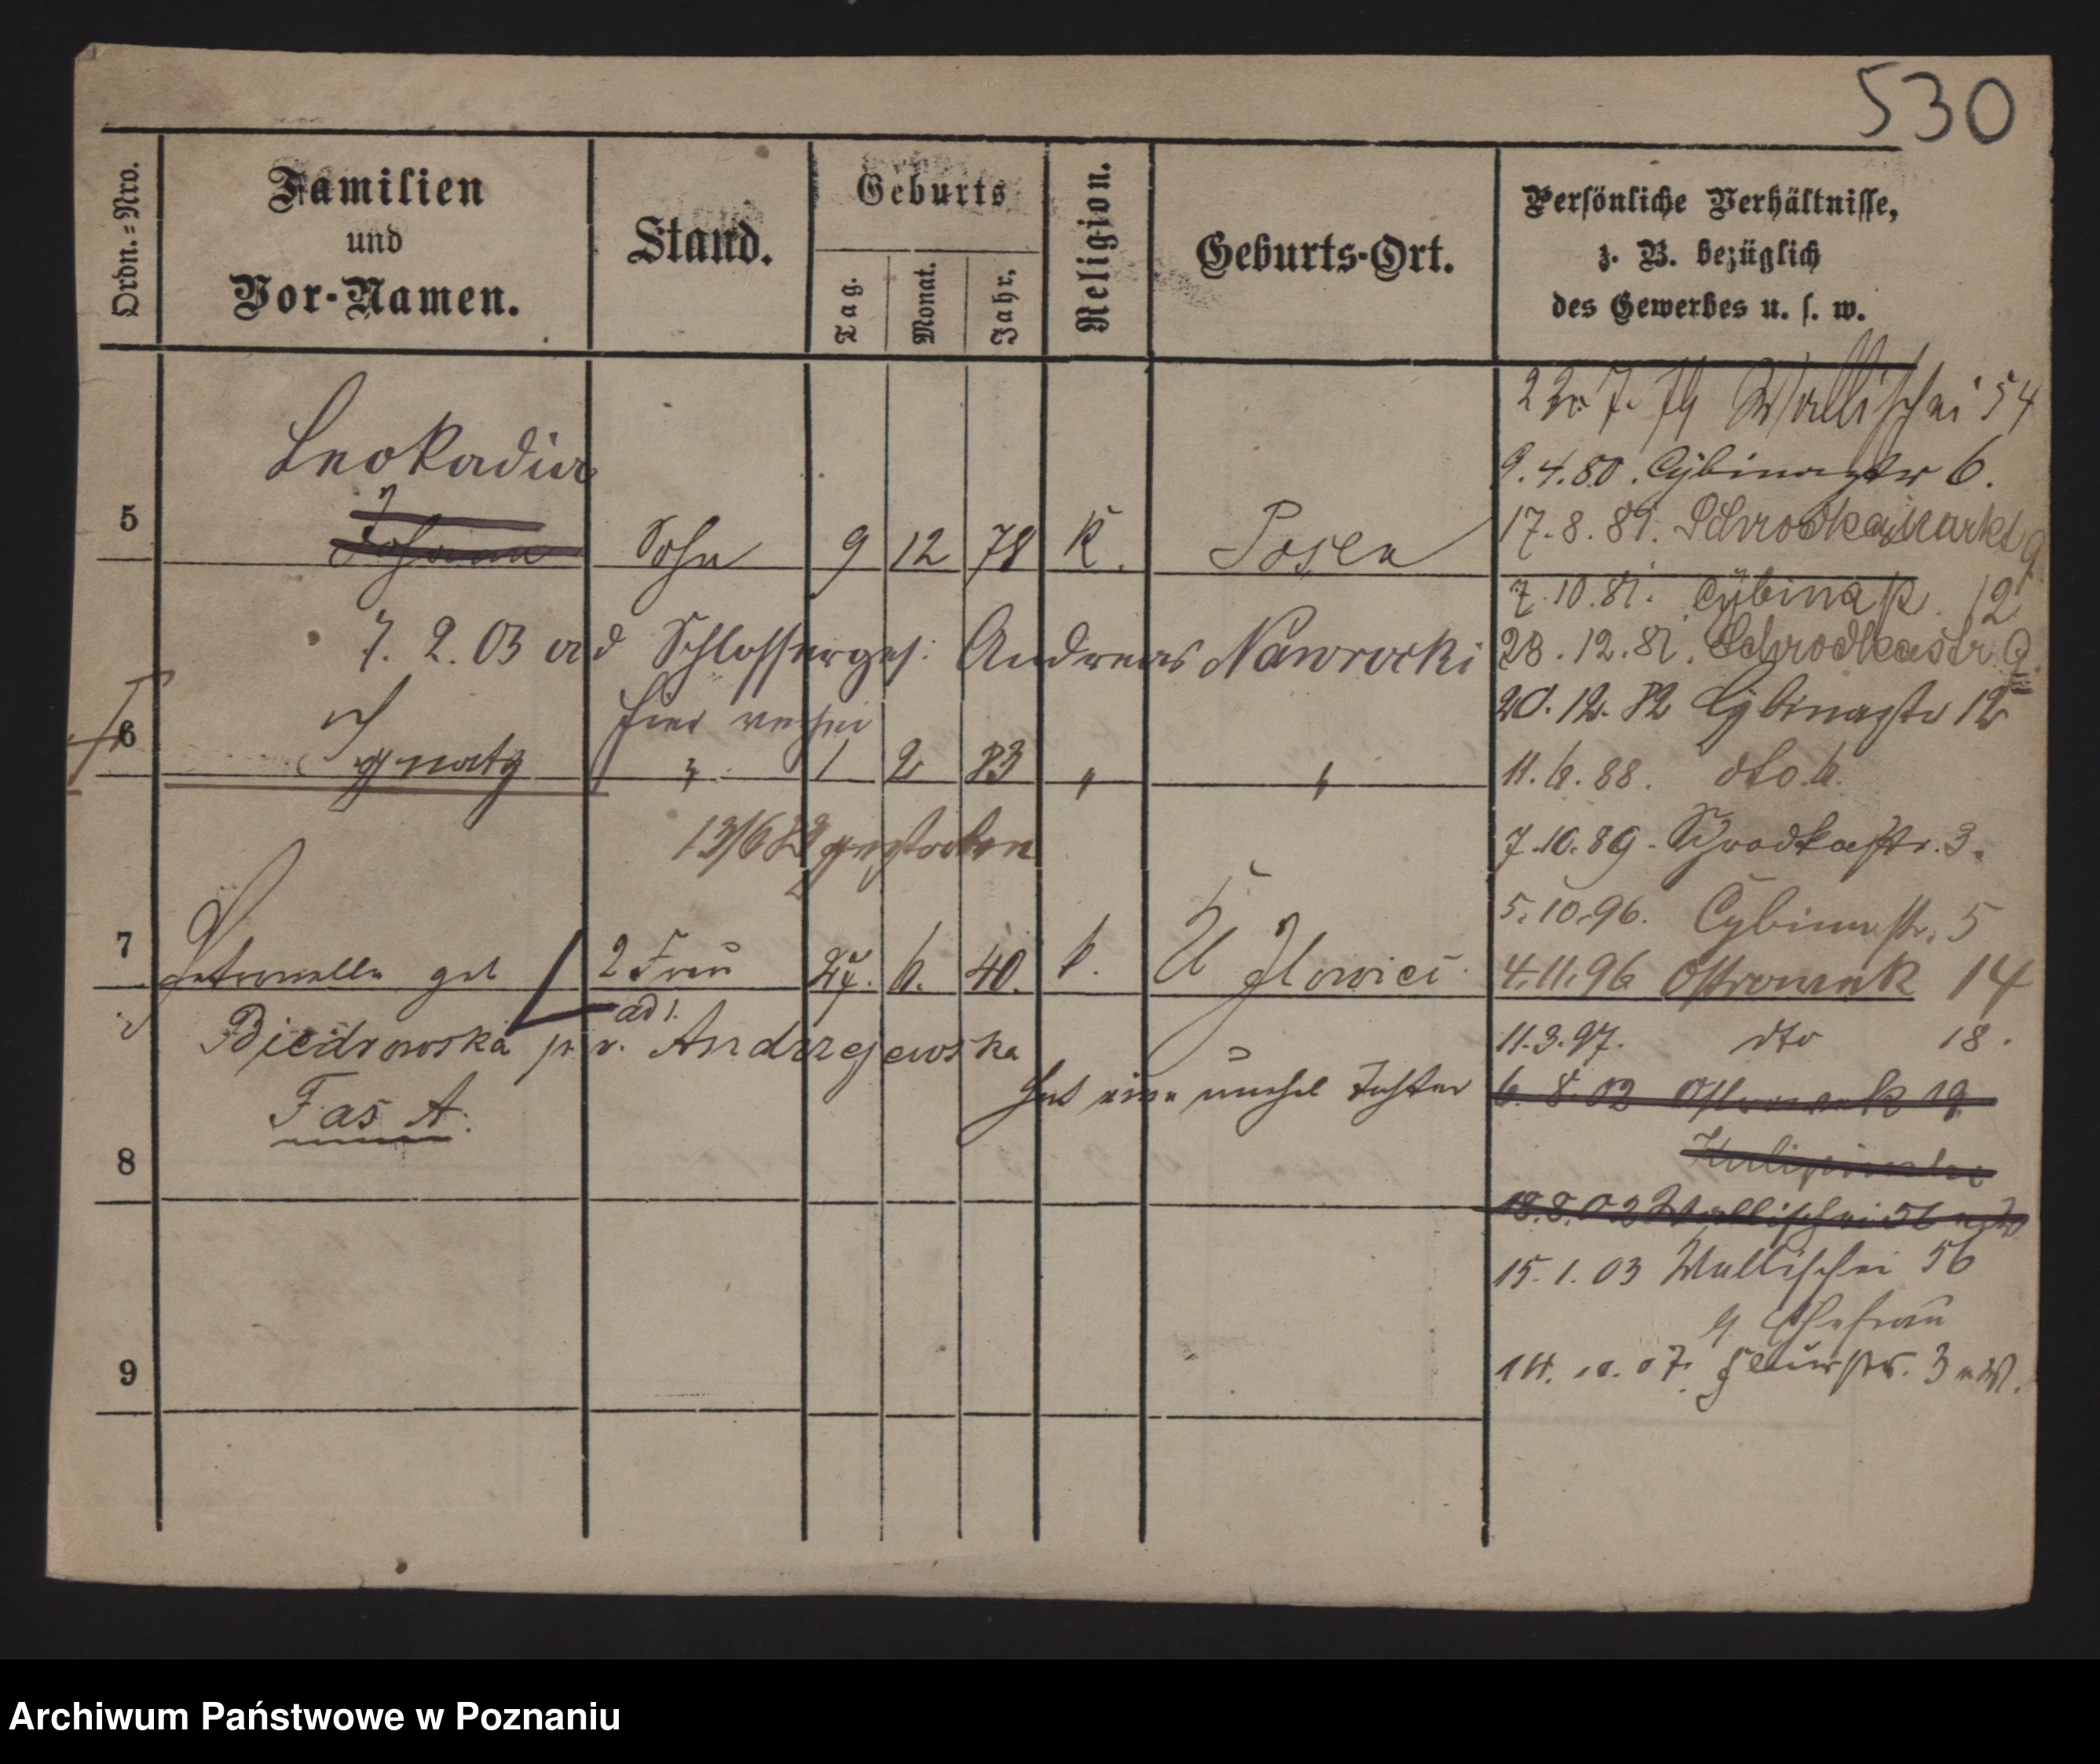 530
Ordn.=Nro.
Familien
und
Vor-Namen.
Stand.
Geburts
Tag.
Monat.
Jahr.
Religion.
Geburts-Ort.
Persönliche Verhältnisse,
z. B. bezüglich
des Gewerbes u. s. w.
Leokadia
5 Johann Sohn 9 12 78 K. Posen
7. 2. 03 ad Schlosserges: Andreas Nawrocki
hier verhei
6 Ignatz " 1 2 83 " "
13/6 83 gestorben
7 Petronella geb 2 Frau 27. 6. 40. k. Jlowiec
ad 1.
Biedrowska p. v. Andrzejewska
hat eine unehel Tochter
Fas A.
8
9
7. 79 Wallischei 54
9.4.80. Cybinastr 6.
17.8.81. Schrodkamarkt 9
7.10.81. Cybina 12
28.12.81. Schrodkastr 9.
20.12.82 Cybinastr 12
11.6.88. dto 6.
7.10.89. Schrodkastr. 3.
5.10.96. Cybinastr. 5
4.11.96 Ostrowek 14
11.3.97. dto 18.
6.8.02 Ostrowek 19
18.8.02 Wallischei 56
15.1.03 Wallischei 56
Ehefrau
14. 10. 07. 3
Archiwum Państwowe w Poznaniu